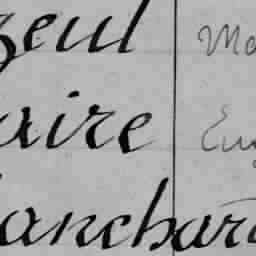 zeul Ma
aire Eug
lanchard